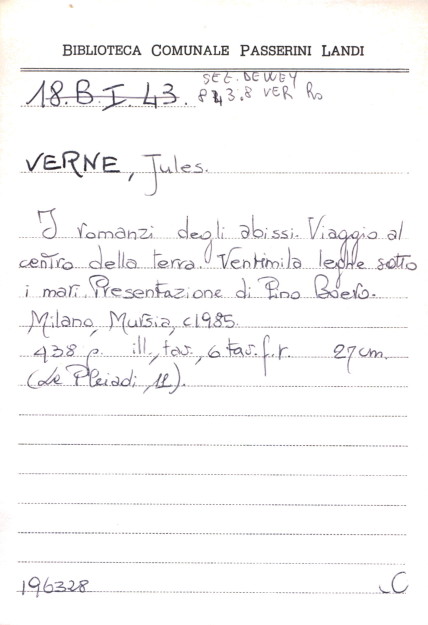 BIBLIOTECA COMUNALE PASSERINI LANDI
SEZ. DEWEY
18.B.I.43. 843.8 VER Ro
VERNE, Jules.
I romanzi degli abissi. Viaggio al
centro della terra. Ventimila leghe sotto
i mari. Presentazione di Pino Boero.
Milano, Mursia, c1985.
438 p. ill., tav., 6 tav. f.t. 27 cm.
(Le Pleiadi, 11).
196328